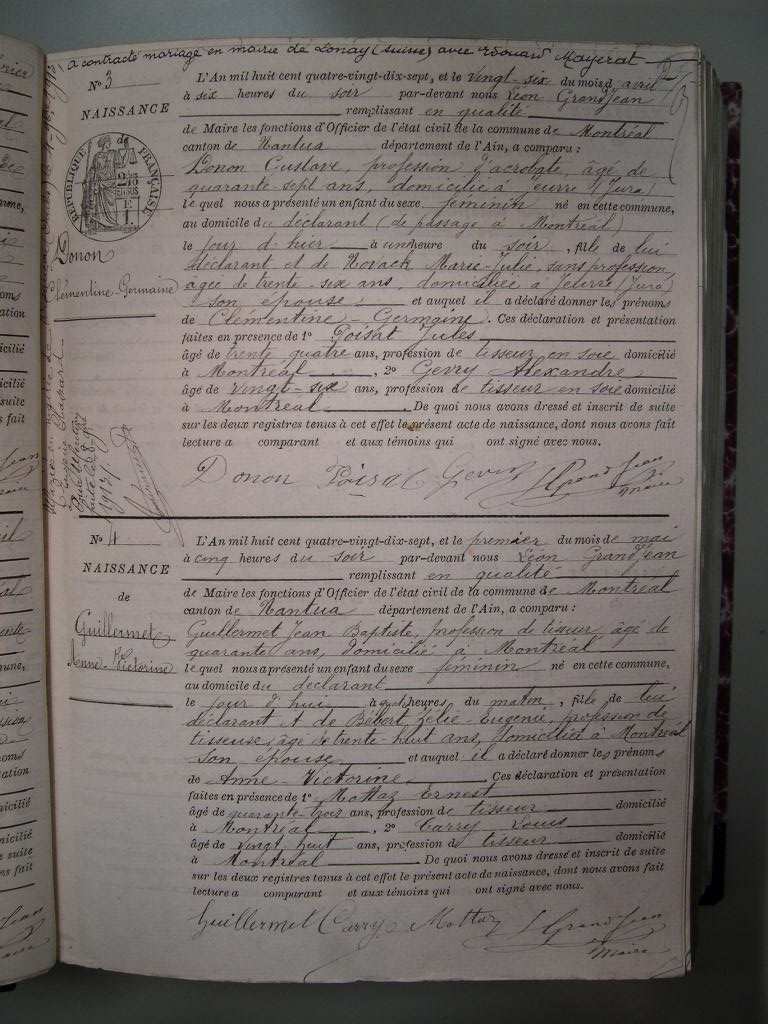 a contracté mariage en mairie de Lonay (Suisse) avec Edouard Mayerat
N° 3
NAISSANCE
RÉPUBLIQUE FRANÇAISE
Donon
Clémentine-Germaine
L'An mil huit cent quatre-vingt-dix-sept, et le vingt-six du mois d'avril
à six heures du soir par-devant nous Léon Grandjean
remplissant en qualité
de Maire les fonctions d'Officier de l'état civil de la commune de Montréal
canton de Nantua département de l'Ain, a comparu :
Donon Gustave, profession d'acrobate, âgé de
quarante-sept ans, domicilié à Jeurre (Jura)
le quel nous a présenté un enfant du sexe féminin né en cette commune,
au domicile du déclarant (de passage à Montréal)
le jour d'hier à une heure du soir, fille de lui
déclarant et de Norack Marie-Julie, sans profession,
âgée de trente-six ans, domiciliée à Jeurre (Jura)
son épouse et auquel il a déclaré donner les prénoms
de Clémentine-Germaine. Ces déclaration et présentation
faites en présence de 1° Poisat Jules
âgé de trente quatre ans, profession de tisseur en soie domicilié
à Montréal, 2° Gevry Alexandre
âgé de vingt-six ans, profession de tisseur en soie domicilié
à Montréal. De quoi nous avons dressé et inscrit de suite
sur les deux registres tenus à cet effet le présent acte de naissance, dont nous avons fait
lecture a comparant et aux témoins qui ont signé avec nous.
Donon Poisat Gevry L Grandjean
Maire
N° 4
NAISSANCE
de
Guillermet
Anne-Victorine
L'An mil huit cent quatre-vingt-dix-sept, et le premier du mois de mai
à cinq heures du soir par-devant nous Léon Grandjean
remplissant en qualité
de Maire les fonctions d'Officier de l'état civil de la commune de Montréal
canton de Nantua département de l'Ain, a comparu :
Guillermet Jean Baptiste, profession de tisseur âgé de
quarante ans, domicilié à Montréal
le quel nous a présenté un enfant du sexe féminin né en cette commune,
au domicile du déclarant
le jour d'hui à heures du matin, fille de lui
déclarant et de Bébert, Julie-Eugénie, profession de
tisseuse, âgée de trente-huit ans, domiciliée à Montréal
son épouse et auquel il a déclaré donner les prénoms
de Anne-Victorine. Ces déclaration et présentation
faites en présence de 1° Mottaz Ernest
âgé de quarante-trois ans, profession de tisseur domicilié
à Montréal, 2° Carry Louis
âgé de vingt huit ans, profession de tisseur domicilié
à Montréal. De quoi nous avons dressé et inscrit de suite
sur les deux registres tenus à cet effet le présent acte de naissance, dont nous avons fait
lecture a comparant et aux témoins qui ont signé avec nous.
Guillermet Carry Mottaz L Grandjean
Maire